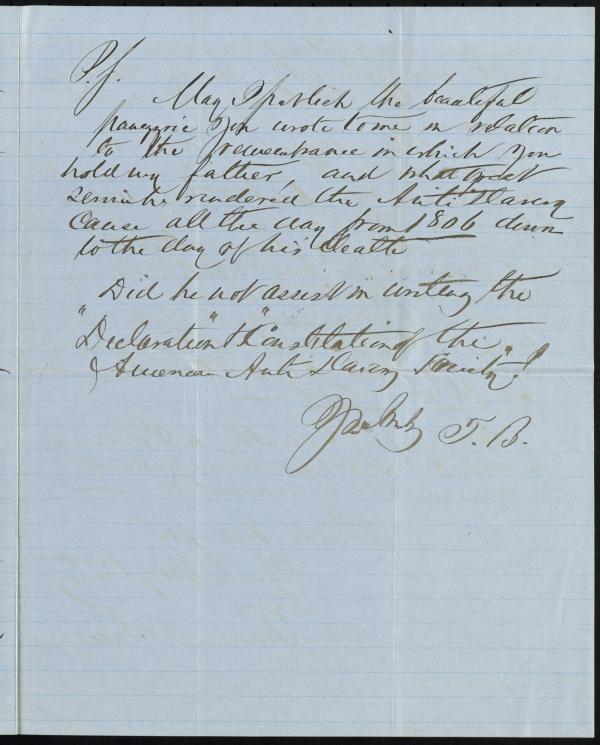 P.S.
May I publish the beautiful
panegyric you wrote to me in relation
to the remembrance in which you
hold my father, and what great
service he rendered the Anti Slavery
Cause all the way from 1806 down
to the day of his death
Did he not assist in writing the
"Declaration" & "Constitution of the
American Anti Slavery Society"?
T. B.